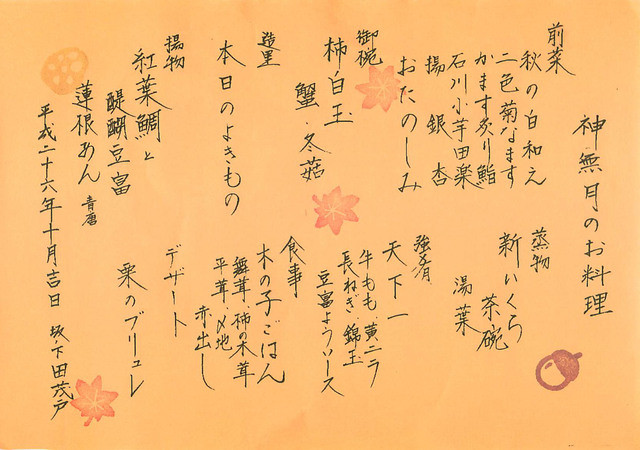 神無月のお料理
前菜
秋の白和え
二色菊なます
かます炙り鮨
石川小芋田楽
揚銀杏
おたのしみ
御椀
柿白玉
蟹・冬菇
造里
本日のよきもの
揚物
紅葉鯛と
醍醐豆富
蓮根あん 青唐
蒸物
新いくら
茶碗
湯葉
強肴
天下一
牛もも・黄ニラ
長ねぎ・錦玉
豆富ようソース
食事
木の子ごはん
舞茸・柿の木茸
平茸・〆地
赤出し
デザート
栗のブリュレ
平成二十六年十月吉日 坂下田茂戸